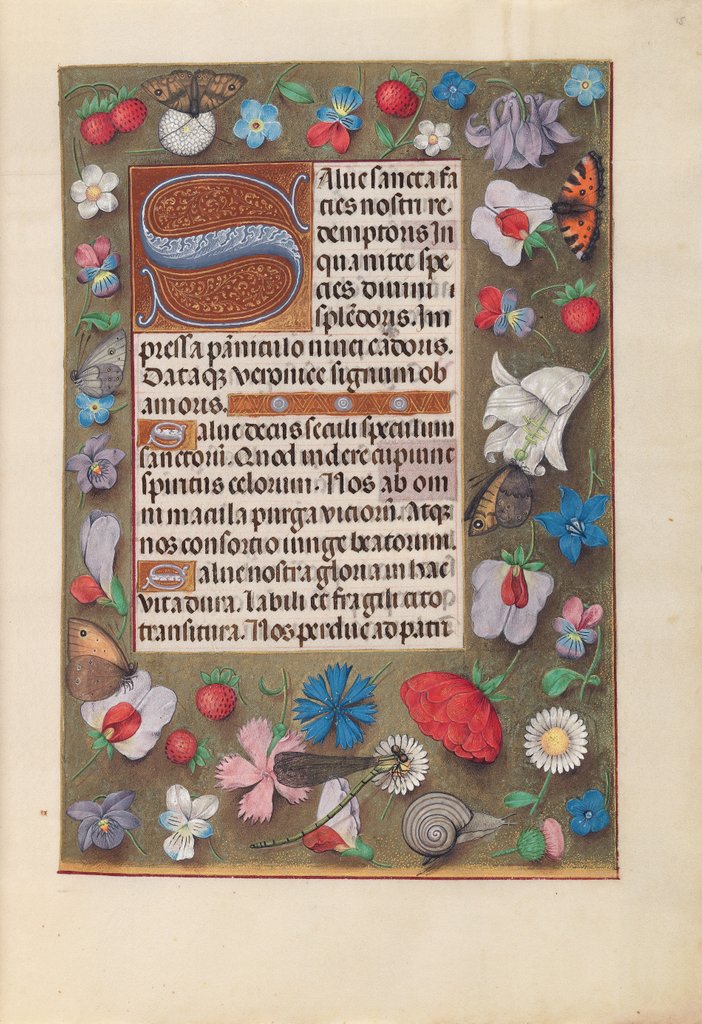 Salue sancta fa
cies nostri re
demptoris In
qua nitet spe
cies diuini
splēdoris. Im
pressa pāniculo niuei cādoris.
Dataq3 veronice signum ob
amoris.
Salue decus seculi speculum
sanctorū. Quod videre cupiunt
spiritus celorum. Nos ab om
ni macula purga vitiorū. Atq3
nos consortio iunge beatorum.
Salue nostra gloria in hac
vita dura. labili et fragili cito
transitura. Nos perduc ad patri